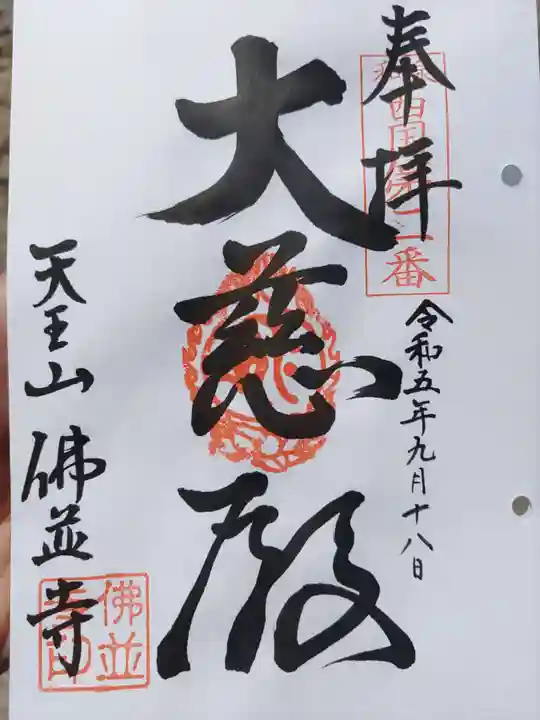 奉拝
令和五年九月十八日
大慈殿
天王山 佛並寺
佛並
寺印